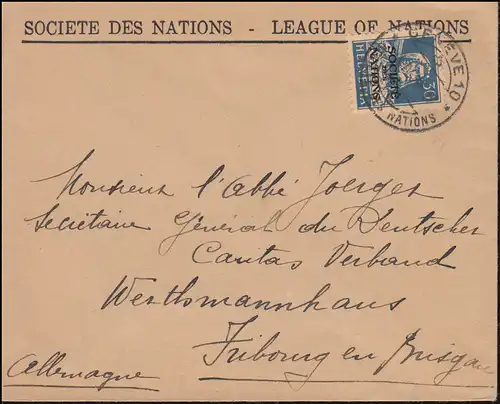 SOCIETE DES NATIONS - LEAGUE OF NATIONS
GENÈVE 10
NATIONS
HELVETIA
30
SOCIÉTÉ DES NATIONS
Monsieur l'abbé Joerger
Secrétaire Général du Deutscher
Caritas Verband
Werthsmannhaus
Fribourg en Brisgau
Allemagne